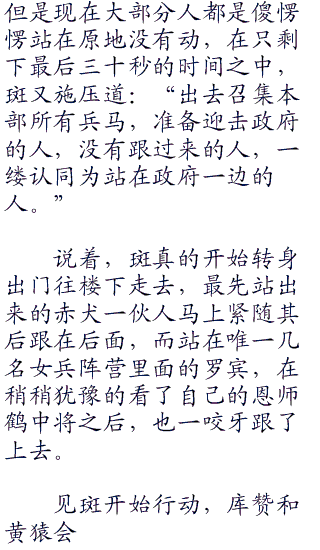 但是现在大部分人都是傻愣
愣站在原地没有动，在只剩
下最后三十秒的时间之中，
斑又施压道：“出去召集本
部所有兵马，准备迎击政府
的人，没有跟过来的人，一
缕认同为站在政府一边的
人。”
说着，斑真的开始转身
出门往楼下走去，最先站出
来的赤犬一伙人马上紧随其
后跟在后面，而站在唯一几
名女兵阵营里面的罗宾，在
稍稍犹豫的看了自己的恩师
鹤中将之后，也一咬牙跟了
上去。
见斑开始行动，库赞和
黄猿会